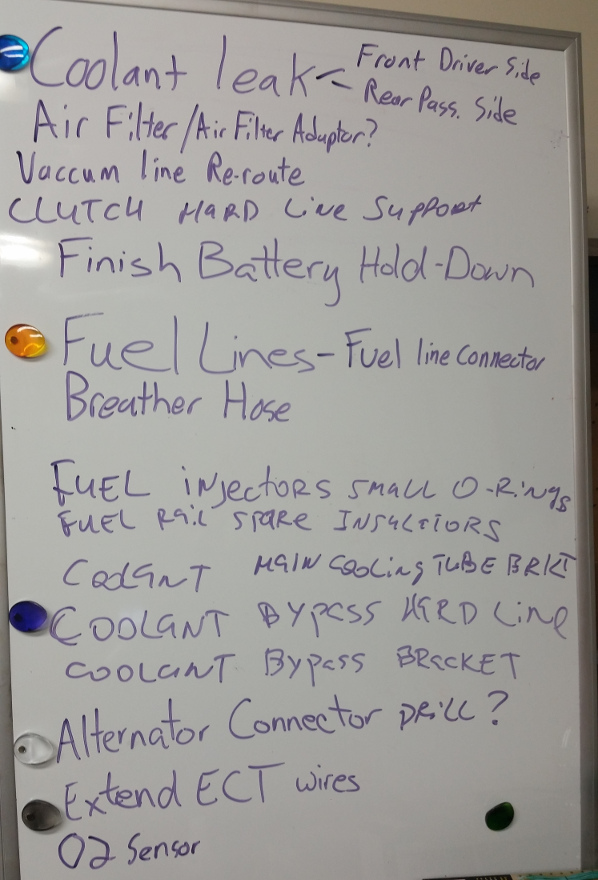 Coolant leak < Front Driver Side
Rear Pass. Side
Air Filter/Air Filter Adaptor?
Vaccum line Re-route
CLUTCH HARD Line Support
Finish Battery Hold-Down
Fuel Lines - Fuel line Connector
Breather Hose
FUEL injectors SMALL O-Rings
FUEL Rail SPARE INSULTIORS
COOLANT MAIN Cooling TUBE BRKT
COOLANT BYPASS HARD Line
COOLANT BYPASS BRACKET
Alternator Connector DRILL?
Extend ECT wires
O2 Sensor